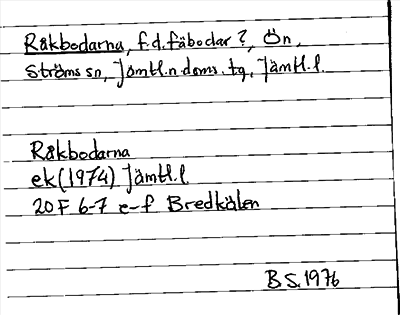 Råkbodarna, f.d. fäbodar?, Ön,
Ströms sn, Jämtl.n.doms.tg, Jämtl.l.
Råkbodarna
ek (1974) Jämtl.l
20F 6-7 e-f Bredkälen
BS.1976